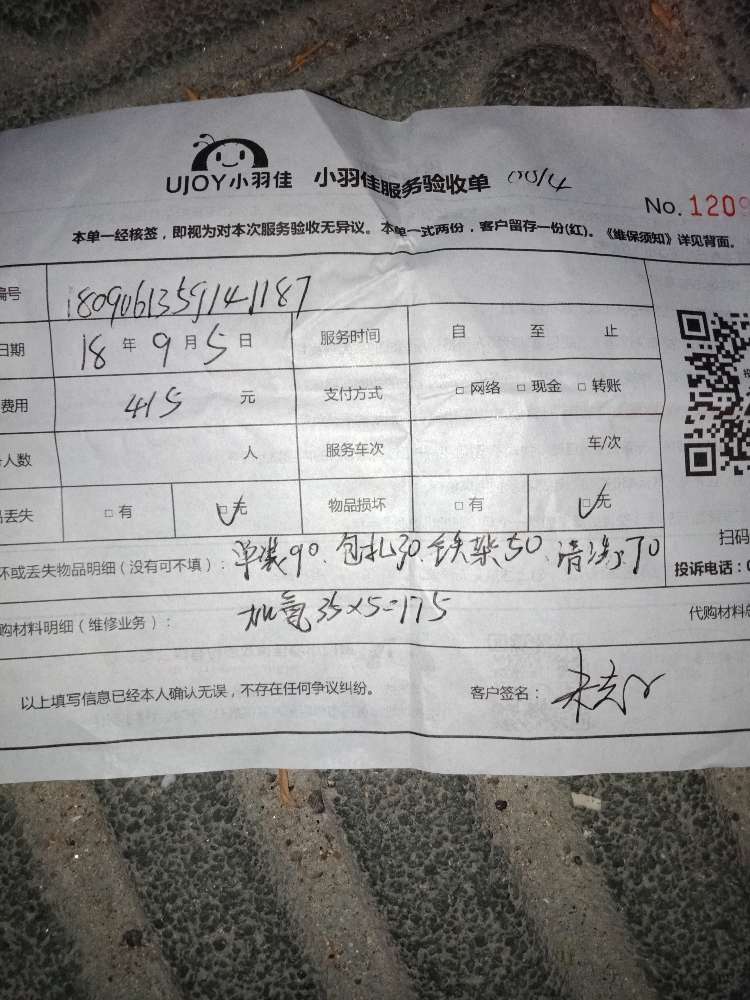 UJOY小羽佳 小羽佳服务验收单
No. 1209
本单一经核签，即视为对本次服务验收无异议。本单一式两份，客户留存一份(红)。《维保须知》详见背面。
编号 180906135914 1187
日期 18 年 9 月 5 日 服务时间 自 至 止
费用 415 元 支付方式 □ 网络 □ 现金 □ 转账
人数 人 服务车次 车/次
丢失 □ 有 □ 无 物品损坏 □ 有 □ 无
扫码
坏或丢失物品明细（没有可不填）： 单装90、包扎30、铁架50、清洗70
投诉电话：0
购材料明细（维修业务）： 加氟35×5=175 代购材料
以上填写信息已经本人确认无误，不存在任何争议纠纷。 客户签名：